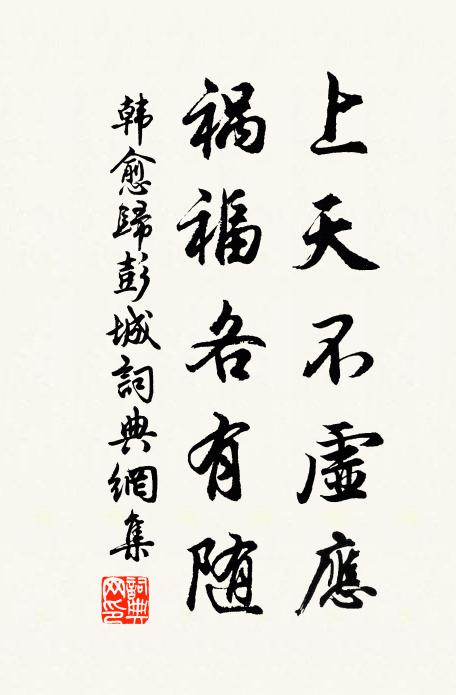 上天不虛應
禍福各有随
韩愈歸彭城詞典網集
詞典网印